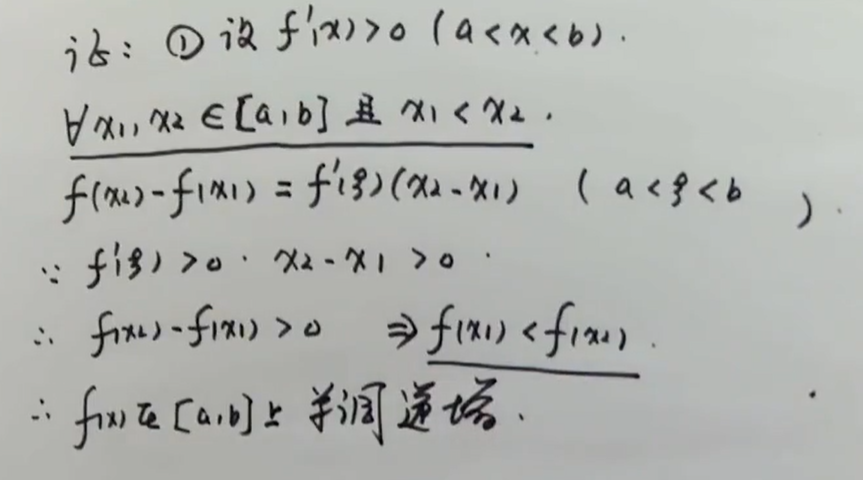 证: ① 设 f'(x)>0 (a<x<b).
∀x1,x2∈[a,b] 且 x1<x2.
f(x2)-f(x1)=f'(ξ)(x2-x1) (a<ξ<b).
∵ f'(ξ)>0. x2-x1>0.
∴ f(x2)-f(x1)>0 ⇒ f(x1)<f(x2).
∴ f(x)在[a,b]上单调递增.